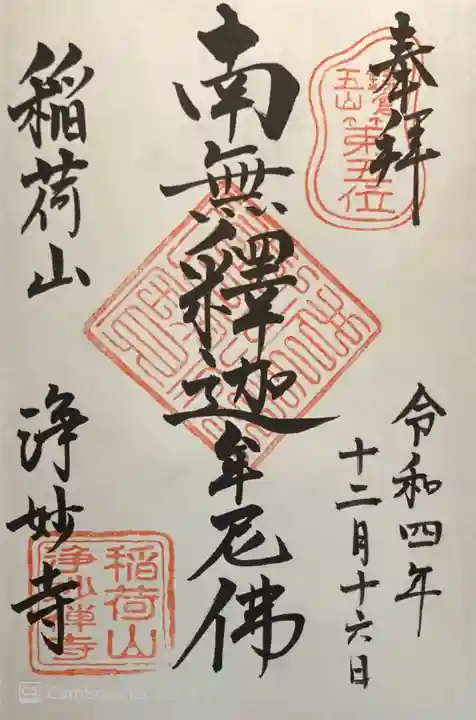 奉拝
鎌倉
五山
第五位
令和四年
十二月十六日
南無釋迦牟尼佛
稲荷山
浄妙寺
稲荷山
浄妙禅寺